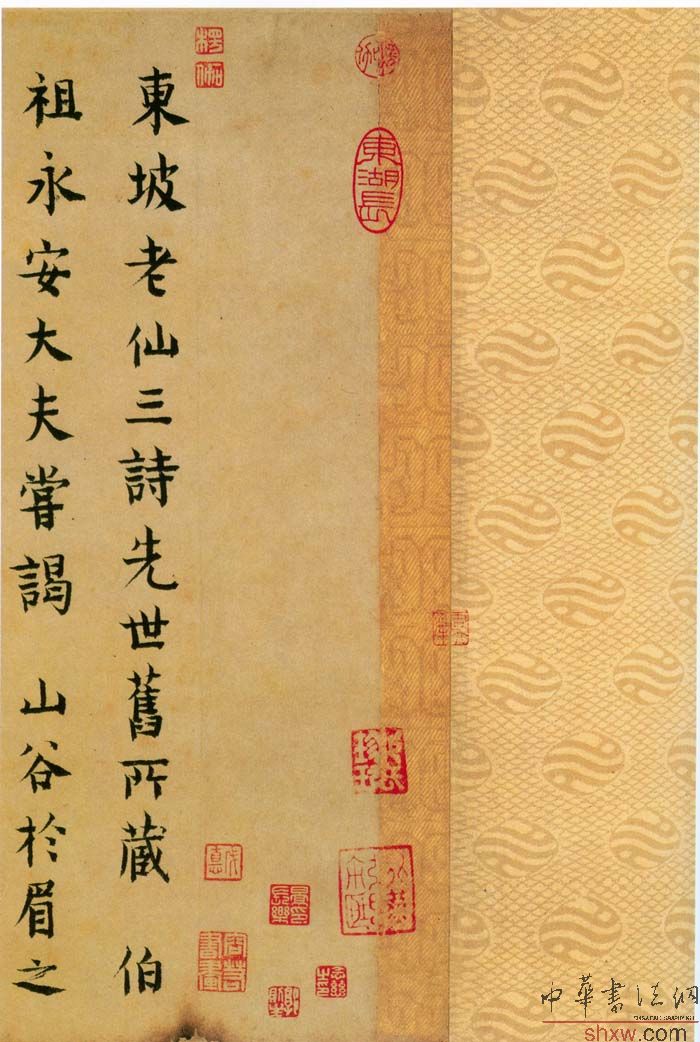 東坡老仙三詩先世舊所蔵 伯
祖永安大夫嘗謁 山谷於眉之
楞伽
東湖長
中華書法網
shxw.com